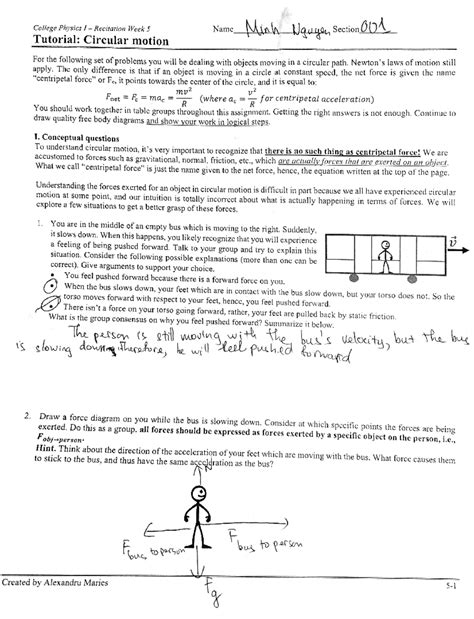 College Physics I – Recitation Week 5
Name Minh Nguyen Section 001
Tutorial: Circular motion
For the following set of problems you will be dealing with objects moving in a circular path. Newton's laws of motion still
apply. The only difference is that if an object is moving in a circle at constant speed, the net force is given the name
"centripetal force" or Fc, it points towards the center of the circle, and it is equal to:
Fnet = Fc = mac = mv²/R (where ac = v²/R for centripetal acceleration)
You should work together in table groups throughout this assignment. Getting the right answers is not enough. Continue to
draw quality free body diagrams and show your work in logical steps.
I. Conceptual questions
To understand circular motion, it's very important to recognize that there is no such thing as centripetal force! We are
accustomed to forces such as gravitational, normal, friction, etc., which are actually forces that are exerted on an object.
What we call "centripetal force" is just the name given to the net force, hence, the equation written at the top of the page.
Understanding the forces exerted for an object in circular motion is difficult in part because we all have experienced circular
motion at some point, and our intuition is totally incorrect about what is actually happening in terms of forces. We will
explore a few situations to get a better grasp of these forces.
1. You are in the middle of an empty bus which is moving to the right. Suddenly,
it slows down. When this happens, you likely recognize that you will experience
a feeling of being pushed forward. Talk to your group and try to explain this
situation. Consider the following possible explanations (more than one can be
correct). Give arguments to support your choice.
v
• You feel pushed forward because there is a forward force on you.
• When the bus slows down, your feet which are in contact with the bus slow down, but your torso does not. So the
torso moves forward with respect to your feet, hence, you feel pushed forward.
There isn't a force on your torso going forward, rather, your feet are pulled back by static friction.
What is the group consensus on why you feel pushed forward? Summarize it below.
The person is still moving with the bus's velocity, but the bus
is slowing down, therefore, he will feel pushed forward
2. Draw a force diagram on you while the bus is slowing down. Consider at which specific points the forces are being
exerted. Do this as a group. all forces should be expressed as forces exerted by a specific object on the person, i.e.,
Fobj→person.
Hint. Think about the direction of the acceleration of your feet which are moving with the bus. What force causes them
to stick to the bus, and thus have the same acceleration as the bus?
N
F bus to person
F bus to person
Fg
Created by Alexandru Maries
5-1